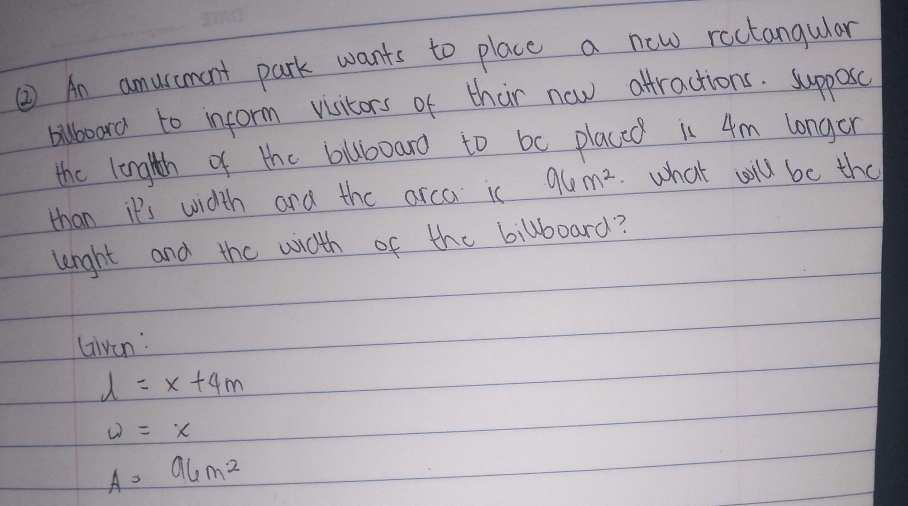 ② An amusement park wants to place a new rectangular
billboard to inform visitors of their new attractions. Suppose
the length of the billboard to be placed is 4m longer
than it's width and the area is 96m². What will be the
lenght and the width of the billboard?
Given:
l = x + 4m
w = x
A = 96m²